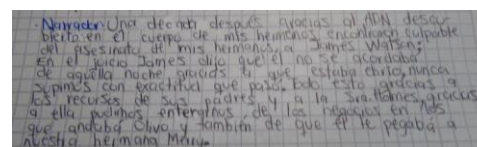 · Narrador: Una decada después gracias al ADN descu-
bierto en el cuerpo de mis hermanos, encontraron culpable
del asesinato de mis hermanos, a James Watson;
En el juicio James dijo que el no se acordaba
de aquella noche gracias a que estaba ebrio, nunca
supimos con exactitud que paso, todo esto gracias a
los recursos de sus padres y a la Sra. Holmes, gracias
a ella pudimos enterarnos de los negocios en los
que andaba Olivo y también de que el le pegaba a
nuestra hermana Mery.